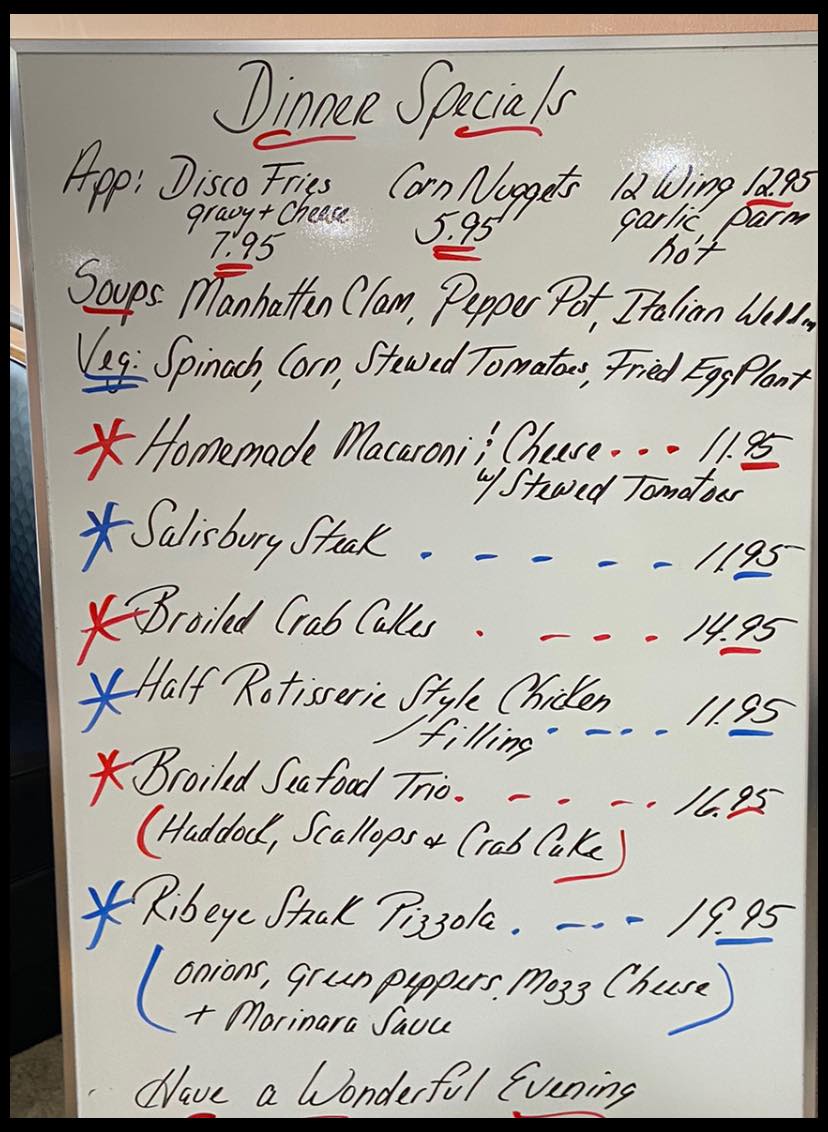 Dinner Specials
App: Disco Fries Corn Nuggets 12 Wing 12.95
gravy + Cheese 5.95 garlic, parm
7.95 hot
Soups: Manhatten Clam, Pepper Pot, Italian
Veg: Spinach, Corn, Stewed Tomatoes, Fried EggPlant
* Homemade Macaroni & Cheese... 11.95
w/ Stewed Tomatoes
* Salisbury Steak . - - - - 11.95
* Broiled Crab Cakes . - - - 14.95
* Half Rotisserie Style Chicken
/filling . - - - 11.95
* Broiled Seafood Trio. - - - - 16.95
(Haddock, Scallops & Crab Cake)
* Ribeye Steak Pizzola . - - - 19.95
(onions, green peppers, Mozz Cheese
+ Marinara Sauce)
Have a Wonderful Evening